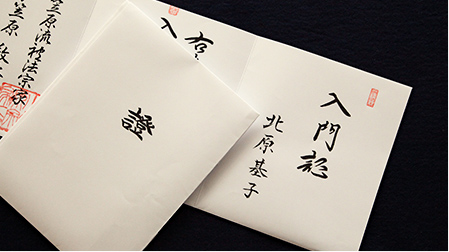 入門記
北原基子
右
入
證
笠原流禮法宗家
笠原